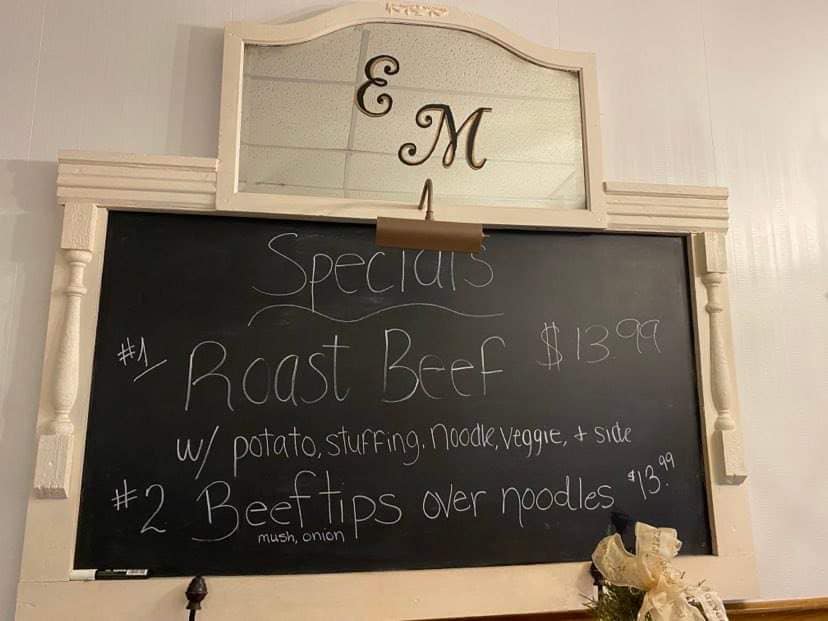 E
M
Specials
#1 Roast Beef $13.99
w/ potato, stuffing, noodle, veggie, + side
#2 Beef tips over noodles $13.99
mush, onion